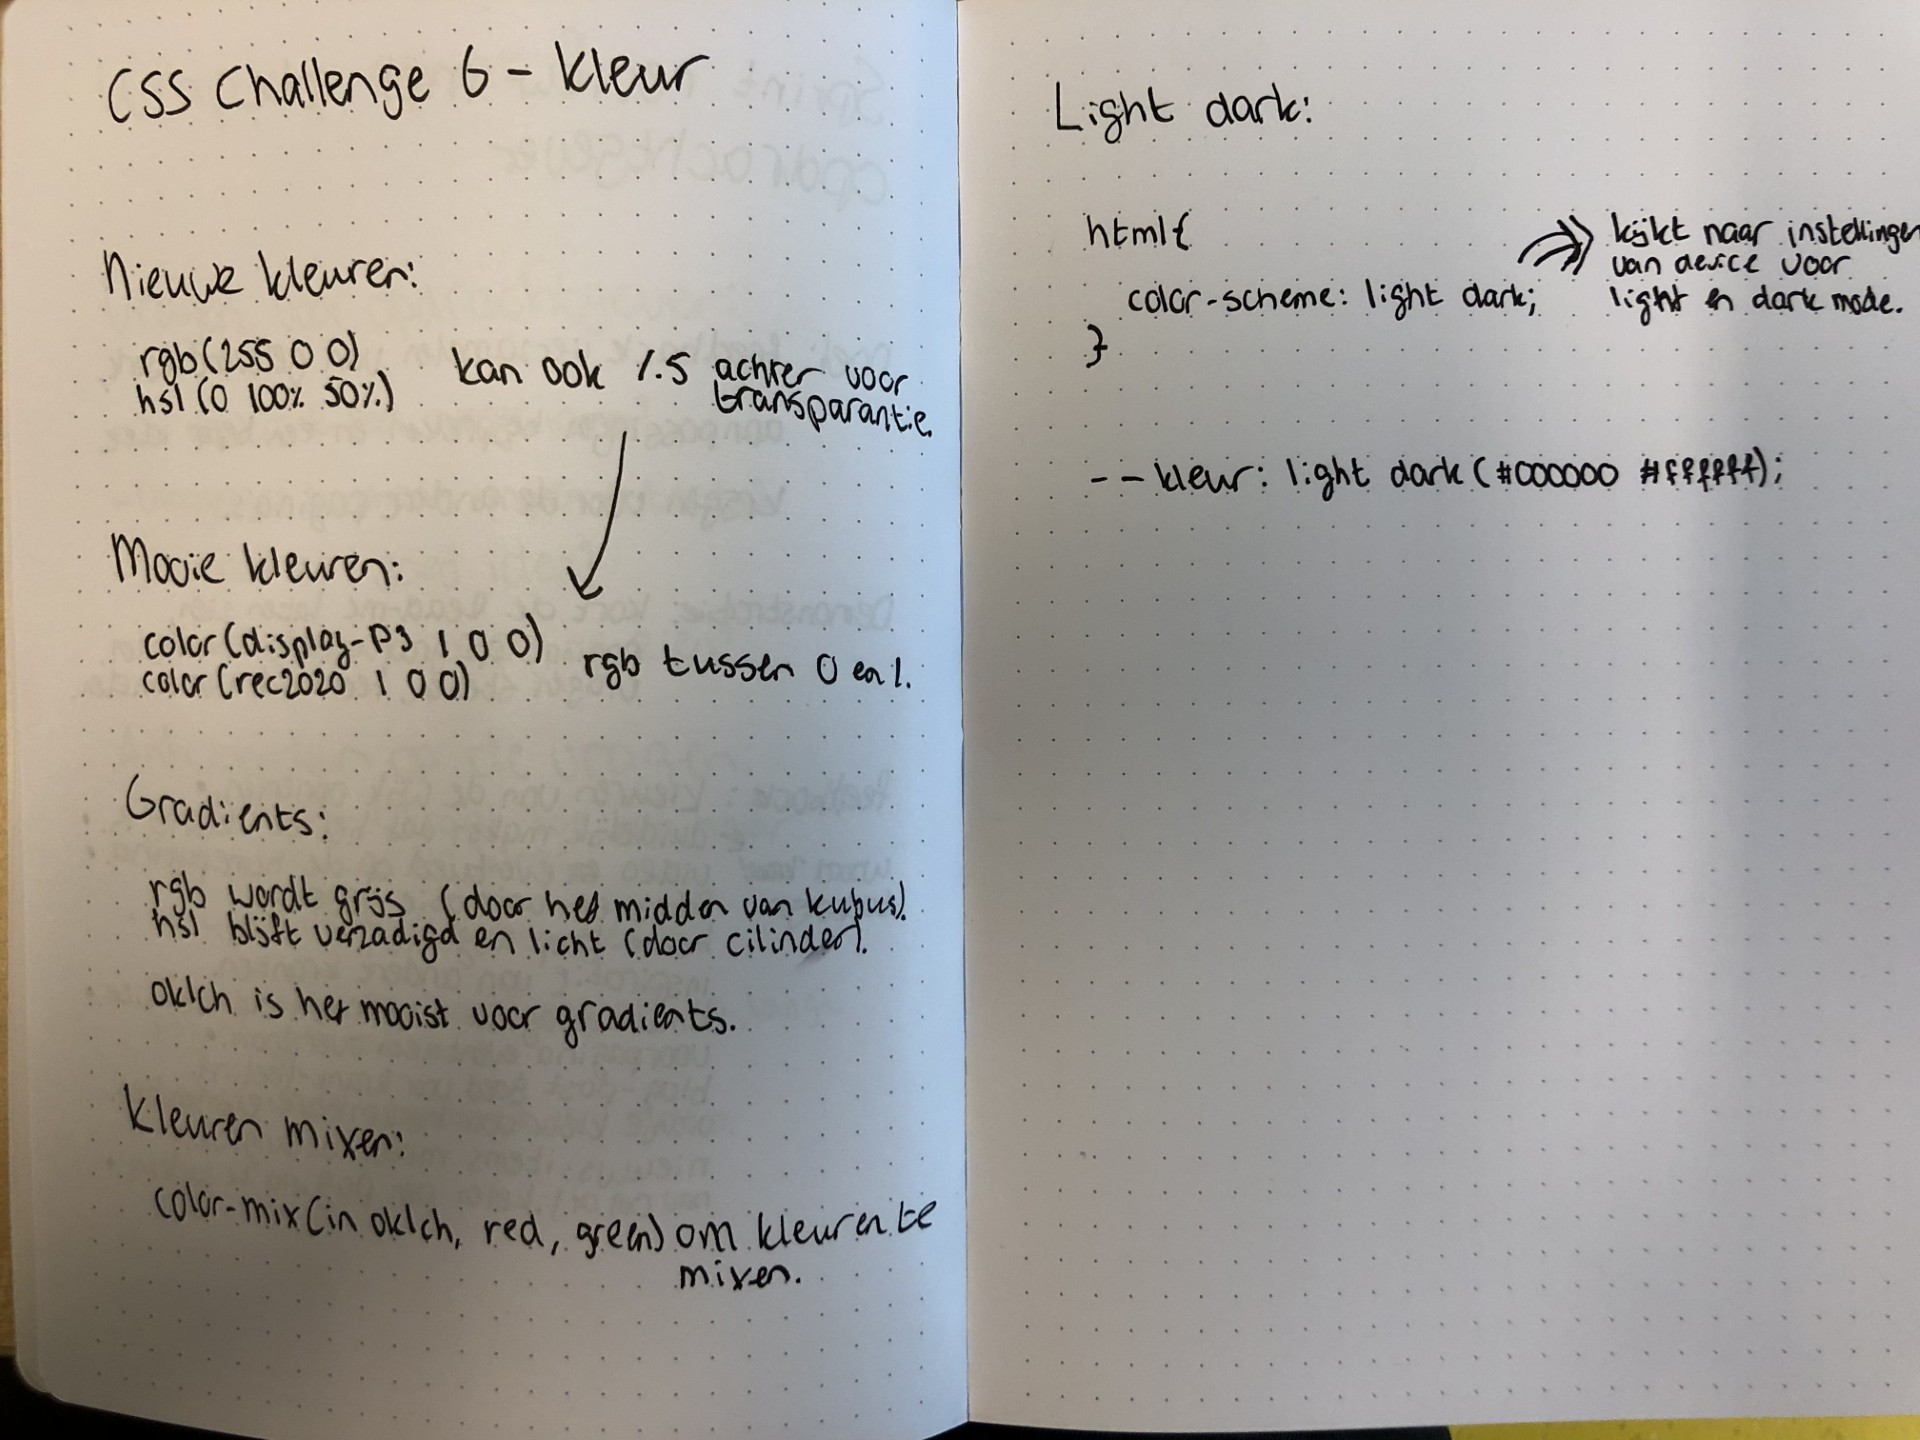 CSS Challenge 6 - kleur
Nieuwe kleuren:
rgb(255 0 0)
hsl(0 100% 50%)
kan ook /.5 achter voor
transparantie.
Mooie kleuren:
color(display-P3 1 0 0)
color(rec2020 1 0 0)
rgb tussen 0 en 1.
Gradients:
rgb wordt grijs (door het midden van kubus).
hsl blijft verzadigd en licht (door cilinder).
oklch is het mooist voor gradients.
Kleuren mixen:
color-mix(in oklch, red, green) om kleuren te
mixen.
Light dark:
html{
color-scheme: light dark;
}
kijkt naar instellingen
van device voor
light en dark mode.
--kleur: light dark(#000000 #ffffff);